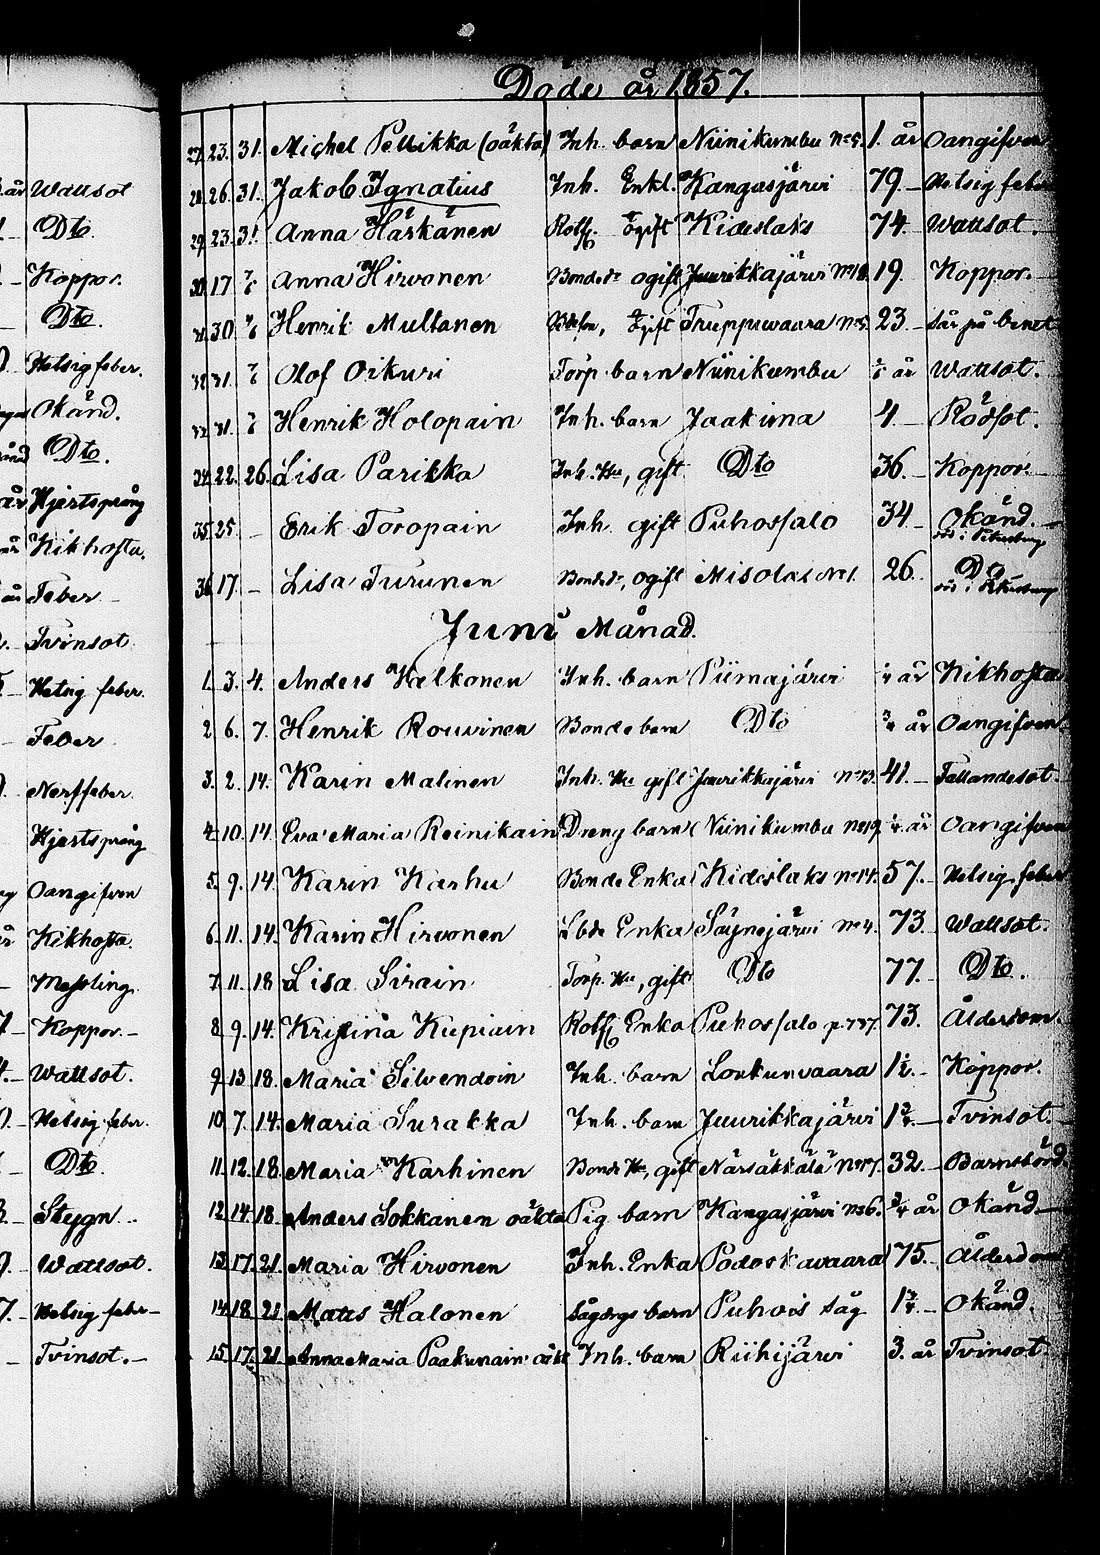 Döde år 1857.
27. 23. 31. Michel Pellikka (oäkta) Inh. barn Niinikumbu No 5. 1. år Oangifven
28. 26. 31. Jakob Ignatius Inh. Enkl. Kangasjärvi 79. – Helsig feber
29. 23. 31. Anna Härkänen Rotf. Egift Kideslaks 74. – Wattsot.
30. 17 Anna Hirvonen Bonded. ogift Juurikkajärvi No 18. 19. Koppor. –
31. 30. Henrik Multanen Egift Truppuwaara No 5. 23. – Sår på benet
32. 31. Olof Oikuri Torp. barn Niinikumbu år Wattsot.
33. 31. Henrik Holopain Inh. barn Jaakima 4. – Rödsot.
34. 22. 26. Lisa Parikka Inh. Hu, gift Dto 36. – Koppor. –
35. 25. – Erik Toropain Inh. gift Puhossalo 34 – Okänd. –
död i Petersburg
36. 17. – Lisa Turunen Bonded., ogift Misola No 1. 26. Do
död i Petersburg
Juni Månad.
1. 3. 4. Anders Walkonen Inh. barn Piimajärvi år Kikhosta
2 6. 7. Henrik Rouvinen Bonde barn Dto år Oangifven
3. 2. 14. Karin Malinen Inh. Hu gift Juurikkajärvi No 13. 41. – Fallandesot.
4. 10. 14. Eva Maria Reinikain Dreng barn Niinikumbu No 19. år Oangifven
5. 9. 14. Karin Karhu Bonde Enka Kideslaks No 14. 57. – Helsig feber
6. 11. 14. Karin Hirvonen Lbde Enka Säynejärvi No 4. 73. – Wattsot.
7. 11. 18 Lisa Sirain Torp. Hu, gift Dto 77. – Dto.
8. 9. 14. Kristina Kupiain Rotf. Enka Puhossalo p. 737. 73. – Ålderdom.
9. 13. 18. Maria Silvendoin Inh. barn Loukunvaara 1½. – Koppor.
10. 7. 14. Maria Surakka Inh. barn Juurikkajärvi Tvinsot.
11. 12. 18. Maria Karhinen Bonde Hu, gift Närsäkkälä No 17. 32. – Barnsbörd.
12. 14. 18. Anders Sokkanen oäkta Pig barn Kangasjärvi No 6. ¾ år Okänd. –
13. 17. 21. Maria Hirvonen Inh. Enka Podoskavaara 75. – Ålderdom
14. 18. 21. Matts Halonen Sågdrgs barn Puhois Såg Okänd.
15. 17. 21. Anna Maria Paakunain oäkt Inh. barn Riihijärvi 3. år Tvinsot.
år Wattsot
Dto.
Koppor.
Dto.
Helsig feber.
Okänd.
Dto.
år Hjertsprång
Kikhosta.
år Feber –
Tvinsot
Helsig feber.
Feber
Nerffeber.
Hjertsprång
Oangifven
Kikhosta.
Messling.
Koppor. –
Wattsot.
Helsig feber.
Dto.
Stygn. –
Wattsot.
Helsig feber –
Tvinsot. –